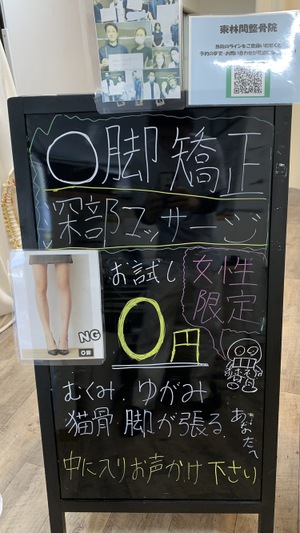 東林間整骨院
〇脚矯正
深部マッサージ
お試し
女性
限定
0円
NG
O脚
むくみ.ゆがみ
猫骨 脚が張る.
あなたへ
中に入りお声かけ下さい